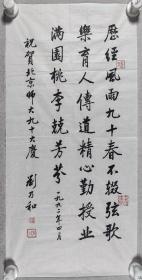 歷經風雨九十春不輟弦歌
樂育人傳道精心勤授業
滿園桃李競芳芬
一九九二年四月
祝賀北京師大九十大慶
劉乃和